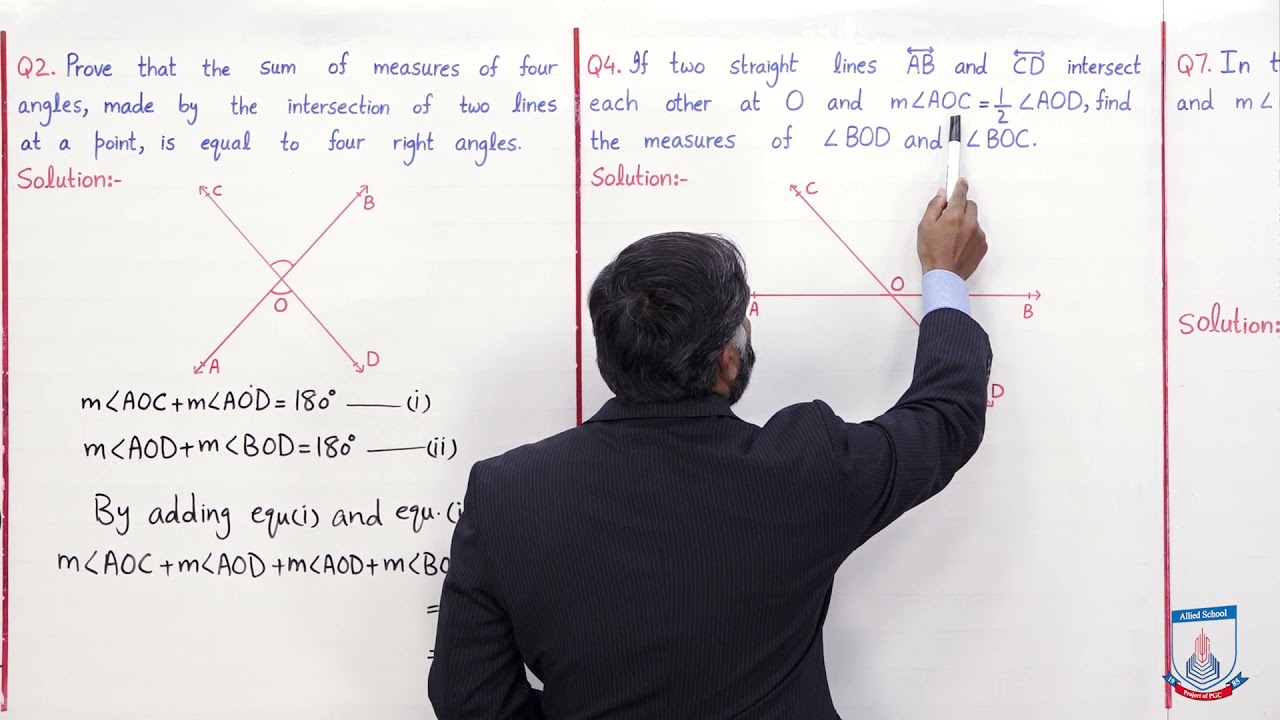 Q2. Prove that the sum of measures of four
angles, made by the intersection of two lines
at a point, is equal to four right angles.
Solution:-
C
B
O
A
D
m∠AOC+m∠AOD=180° —— (i)
m∠AOD+m∠BOD=180° —— (ii)
By adding equ(i) and equ.(i
m∠AOC+m∠AOD+m∠AOD+m∠BO
=
=
Q4. If two straight lines AB and CD intersect
each other at O and m∠AOC=1/2 ∠AOD, find
the measures of ∠BOD and ∠BOC.
Solution:-
C
O
A
B
D
Q7. In t
and m∠
Solution:
Allied School
1985
Project of PGC